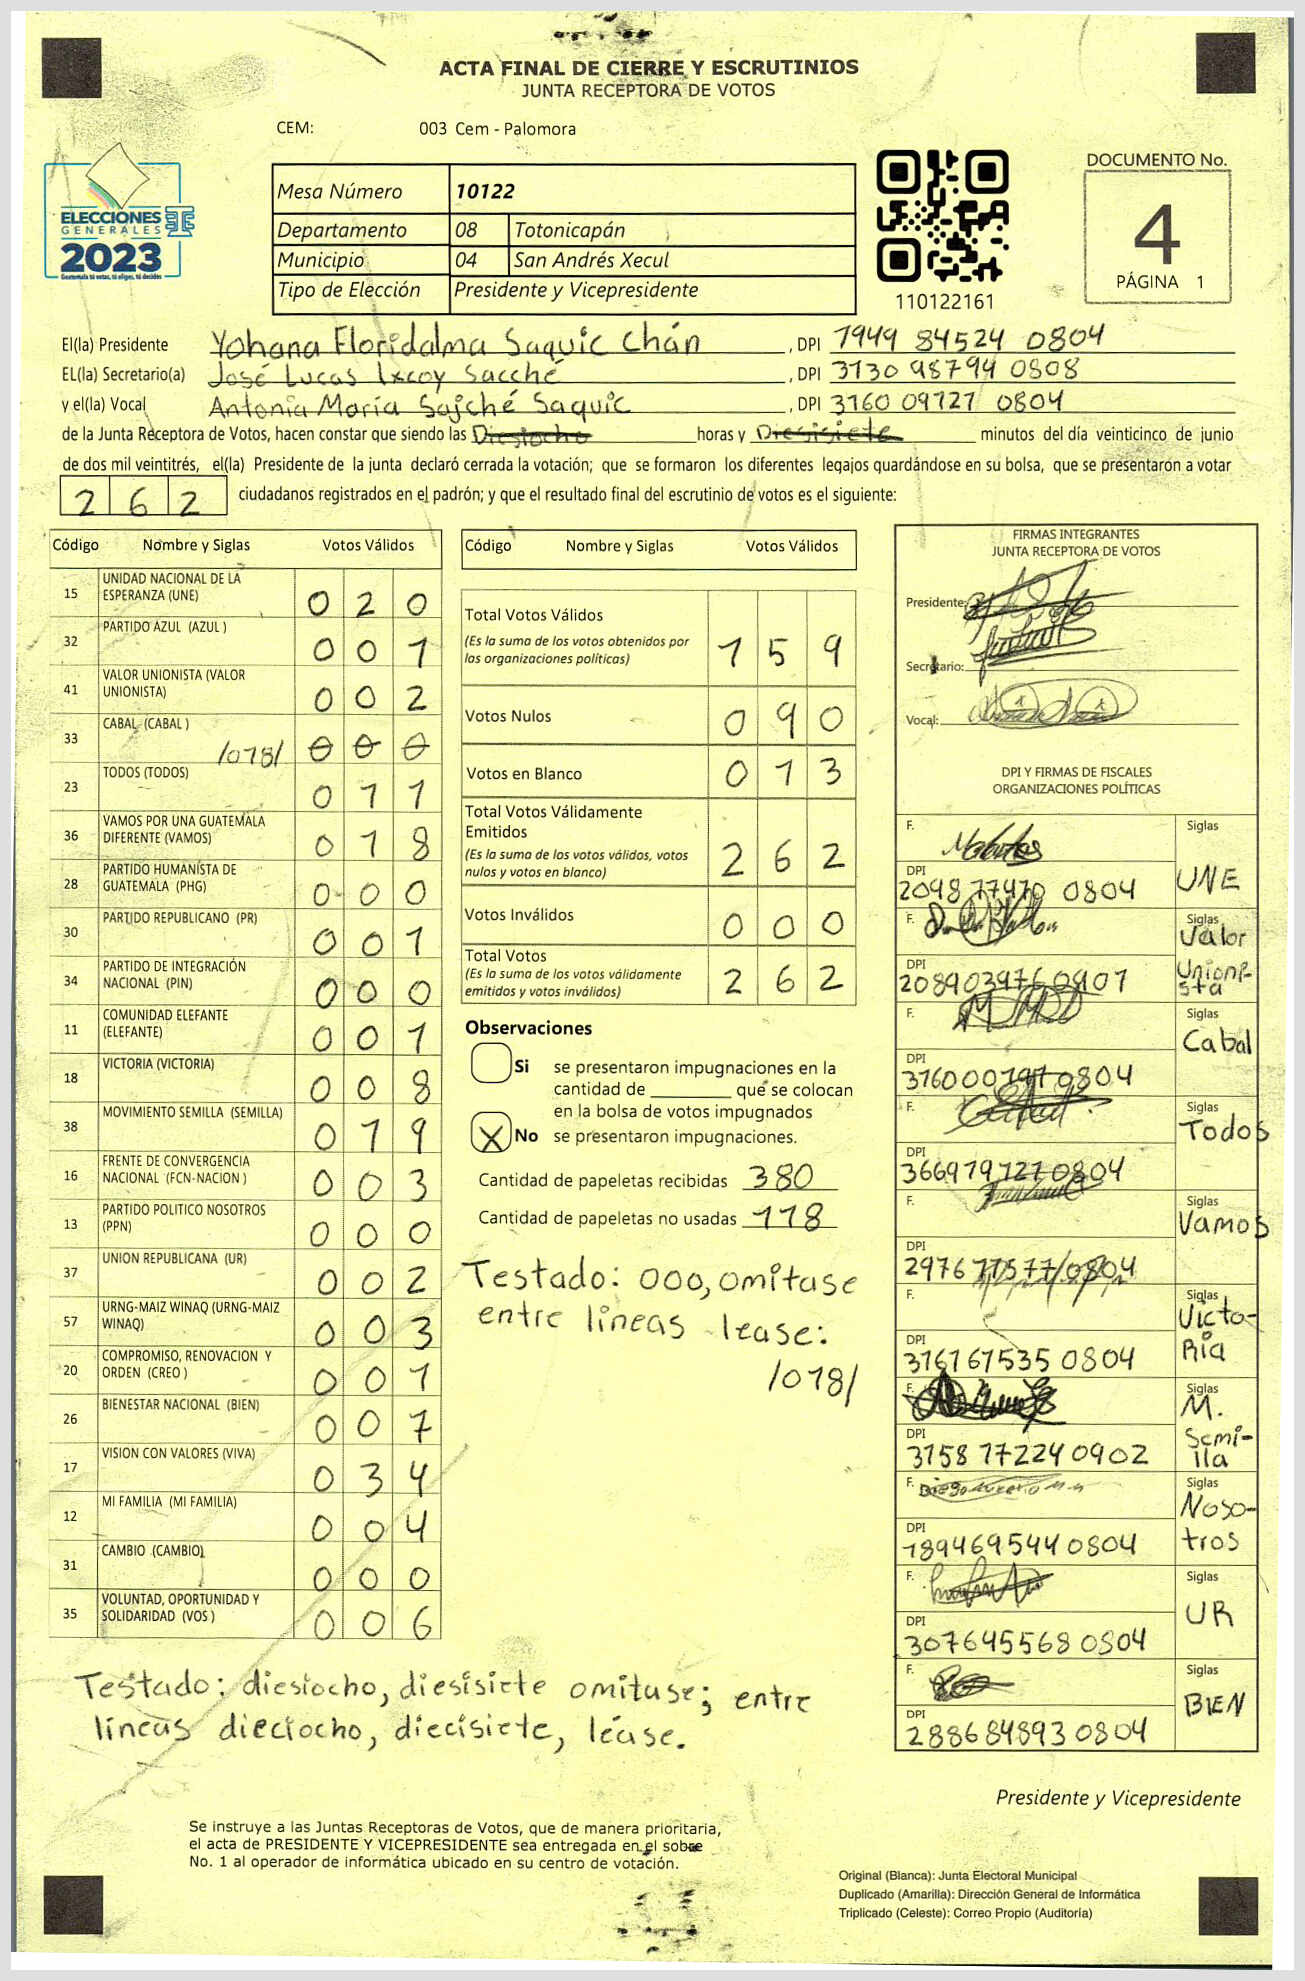 ACTA FINAL DE CIERRE Y ESCRUTINIOS
JUNTA RECEPTORA DE VOTOS
CEM: 003 Cem - Palomora
ELECCIONES
GENERALES
2023
Guatemala tú votas, tú eliges, tú decides
Mesa Número 10122
Departamento 08 Totonicapán
Municipio 04 San Andrés Xecul
Tipo de Elección Presidente y Vicepresidente
110122161
DOCUMENTO No.
4
PÁGINA 1
El(la) Presidente Yohana Floridalma Saquic Chán, DPI 1949 84524 0804
EL(la) Secretario(a) José Lucas Ixcoy Sacché, DPI 3130 98794 0808
y el(la) Vocal Antonia María Sajché Saquic, DPI 3160 09727 0804
de la Junta Receptora de Votos, hacen constar que siendo las Diesiocho horas y Diesisiete minutos del día veinticinco de junio
de dos mil veintitrés, el(la) Presidente de la junta declaró cerrada la votación; que se formaron los diferentes legajos guardándose en su bolsa, que se presentaron a votar
262 ciudadanos registrados en el padrón; y que el resultado final del escrutinio de votos es el siguiente:
Código Nombre y Siglas Votos Válidos
15 UNIDAD NACIONAL DE LA ESPERANZA (UNE) 020
32 PARTIDO AZUL (AZUL ) 001
41 VALOR UNIONISTA (VALOR UNIONISTA) 002
33 CABAL (CABAL ) /018/ 000
23 TODOS (TODOS) 011
36 VAMOS POR UNA GUATEMALA DIFERENTE (VAMOS) 018
28 PARTIDO HUMANISTA DE GUATEMALA (PHG) 000
30 PARTIDO REPUBLICANO (PR) 001
34 PARTIDO DE INTEGRACIÓN NACIONAL (PIN) 000
11 COMUNIDAD ELEFANTE (ELEFANTE) 001
18 VICTORIA (VICTORIA) 008
38 MOVIMIENTO SEMILLA (SEMILLA) 019
16 FRENTE DE CONVERGENCIA NACIONAL (FCN-NACION ) 003
13 PARTIDO POLITICO NOSOTROS (PPN) 000
37 UNION REPUBLICANA (UR) 002
57 URNG-MAIZ WINAQ (URNG-MAIZ WINAQ) 003
20 COMPROMISO, RENOVACION Y ORDEN (CREO ) 001
26 BIENESTAR NACIONAL (BIEN) 007
17 VISION CON VALORES (VIVA) 034
12 MI FAMILIA (MI FAMILIA) 004
31 CAMBIO (CAMBIO) 000
35 VOLUNTAD, OPORTUNIDAD Y SOLIDARIDAD (VOS ) 006
Testado: diesiocho, diesisiete omitase; entre
líneas dieciocho, diecisiete, léase.
Código Nombre y Siglas Votos Válidos
Total Votos Válidos 159
(Es la suma de los votos obtenidos por
las organizaciones políticas)
Votos Nulos 090
Votos en Blanco 013
Total Votos Válidamente
Emitidos 262
(Es la suma de los votos válidos, votos
nulos y votos en blanco)
Votos Inválidos 000
Total Votos 262
(Es la suma de los votos válidamente
emitidos y votos inválidos)
Observaciones
Si se presentaron impugnaciones en la
cantidad de ________ que se colocan
en la bolsa de votos impugnados
X No se presentaron impugnaciones.
Cantidad de papeletas recibidas 380
Cantidad de papeletas no usadas 118
Testado: 000, omitase
entre líneas lease:
/018/
FIRMAS INTEGRANTES
JUNTA RECEPTORA DE VOTOS
Presidente:
Secretario:
Vocal:
DPI Y FIRMAS DE FISCALES
ORGANIZACIONES POLÍTICAS
F. Siglas UNE
DPI 2098 77470 0804
F. Siglas Valor Unionista
DPI 208903976 0907
F. Siglas Cabal
DPI 0804
F. Siglas Todos
DPI 366979727 0804
F. Siglas Vamos
DPI 0804
F. Siglas Victo-
Ria
DPI 316767535 0804
F. Siglas M.
Semi-
lla
DPI 3158 77224 0902
F. Siglas Noso-
tros
DPI 189469544 0804
F. Siglas UR
DPI 307645568 0804
F. Siglas BIEN
DPI 288684893 0804
Presidente y Vicepresidente
Se instruye a las Juntas Receptoras de Votos, que de manera prioritaria,
el acta de PRESIDENTE Y VICEPRESIDENTE sea entregada en el sobre
No. 1 al operador de informática ubicado en su centro de votación.
Original (Blanca): Junta Electoral Municipal
Duplicado (Amarilla): Dirección General de Informática
Triplicado (Celeste): Correo Propio (Auditoría)